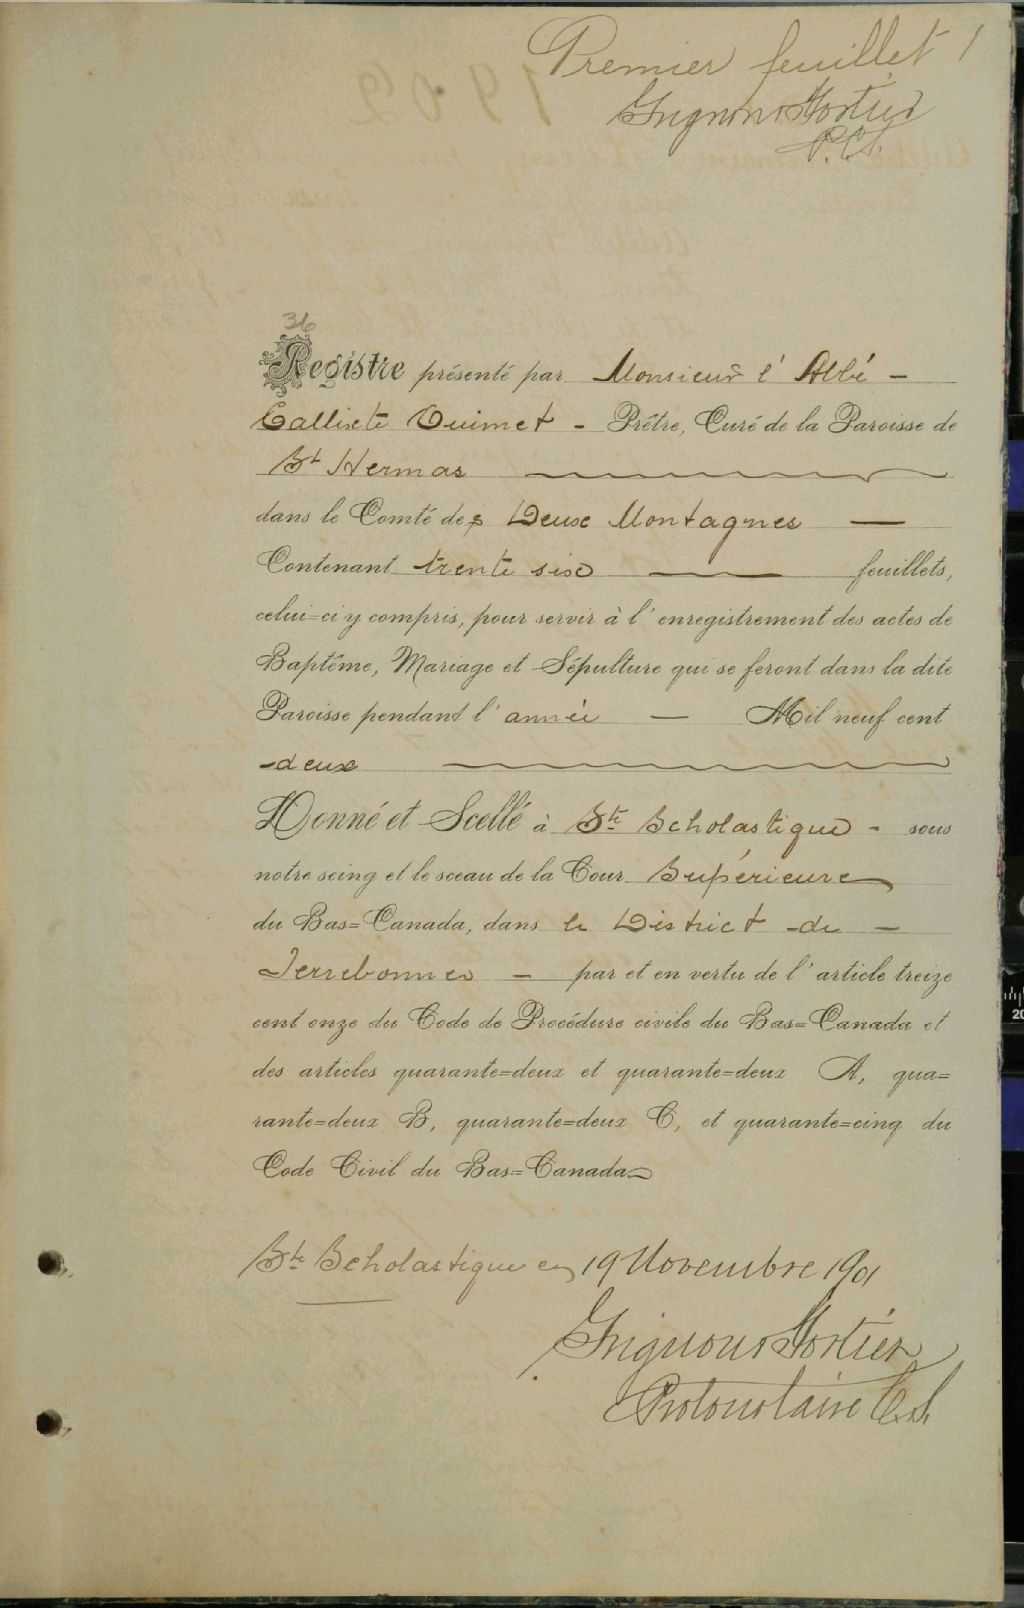 Premier feuillet 1
Grignon & Fortier
P.C.S.
36
Registre présenté par Monsieur l'Abbé -
Callixte Ouimet - Prêtre, Curé de la Paroisse de
St Hermas
dans le Comté des Deux Montagnes —
Contenant trente six — feuillets,
celui=ci y compris, pour servir à l'enregistrement des actes de
Baptême, Mariage et Sépulture qui se feront dans la dite
Paroisse pendant l'année — Mil neuf cent
deux
Donné et Scellé à Ste Scholastique - sous
notre seing et le sceau de la Cour Supérieure
du Bas=Canada, dans le District de -
Terrebonne - par et en vertu de l'article treize
cent onze du Code de Procédure civile du Bas=Canada et
des articles quarante=deux et quarante=deux A, qua=
rante=deux B, quarante=deux C, et quarante=cinq du
Code Civil du Bas=Canada
Ste Scholastique 19 Novembre 1901
Grignon & Fortier
Protonotaire C.S.
20